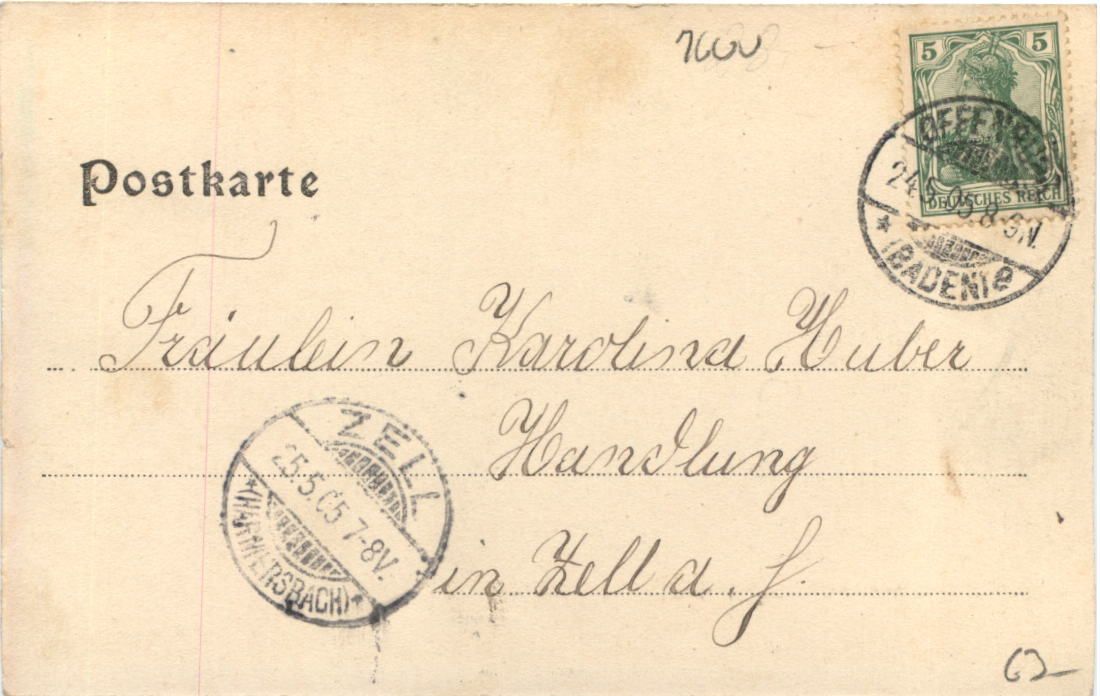 7600
5 5
DEUTSCHES REICH
OFFENBURG
24.5.05.8-9N.
* (BADEN) e
Postkarte
Fräulein Karolina Huber
Handlung
in Zell a. H.
ZELL
25.5.05.7-8V.
* (HARMERSBACH) *